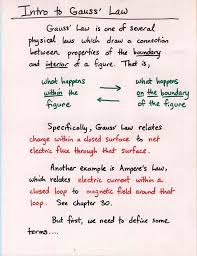 Intro to Gauss' Law
Gauss' Law is one of several
physical laws which draw a connection
between properties of the boundary
and interior of a figure. That is,
what happens what happens
within the on the boundary
figure of the figure
Specifically, Gauss' Law relates
charge within a closed surface to net
electric flux through that surface.
Another example is Ampere's Law,
which relates electric current within a
closed loop to magnetic field around that
loop. See chapter 30.
But first, we need to define some
terms....